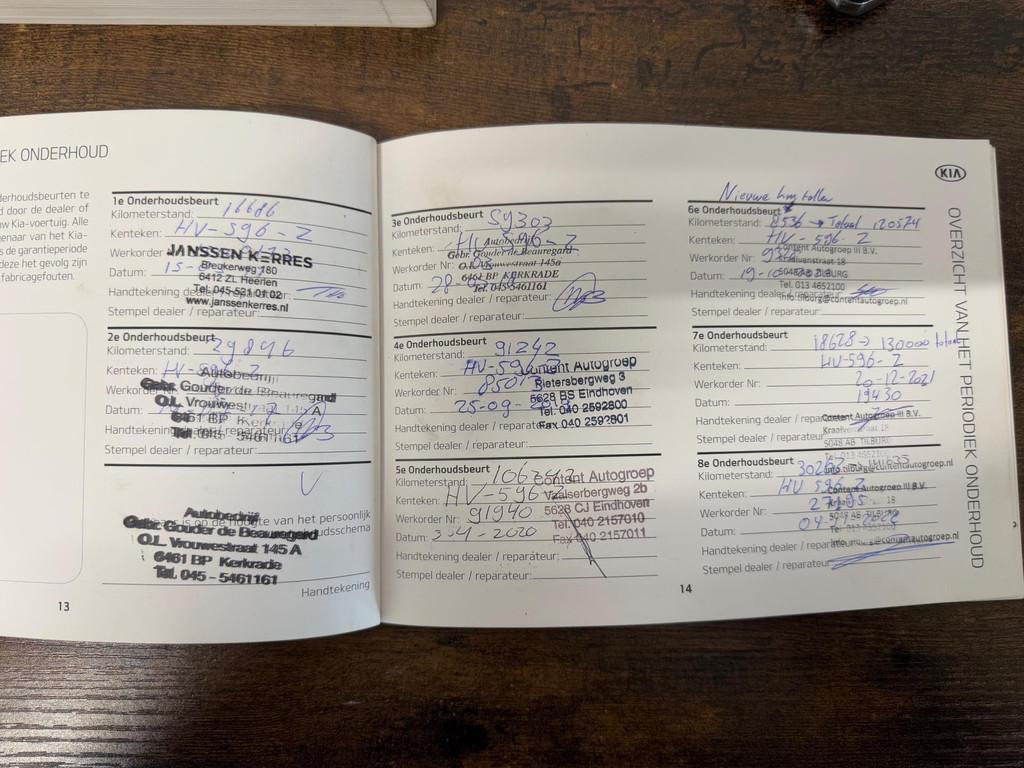 EK ONDERHOUD
derhoudsbeurten te
d door de dealer of
w Kia-voertuig. Alle
genaar van het Kia-
s de garantieperiode
deze het gevolg zijn
fabricagefouten.
1e Onderhoudsbeurt
Kilometerstand: 16686
Kenteken: HV-596-Z
Werkorder
JANSSEN KERRES
Breukerweg 180
Datum: 15-
6412 ZL Heerlen
Tel. 045-531 01 02
Handtekening dealer / reparateur:
www.janssenkerres.nl
Stempel dealer / reparateur:
2e Onderhoudsbeurt
Kilometerstand: 29896
Kenteken: HV-596-Z
Autobedrijf
Werkorder Nr:
Gebr. Gouder de Beauregard
O.L. Vrouwestraat 145 A
Datum:
6461 BP Kerkrade
Handtekening dealer / reparateur:
Tel. 045 - 5461161
Stempel dealer / reparateur:
is op de hoogte van het persoonlijk
udsschema
Autobedrijf
Gebr. Gouder de Beauregard
O.L. Vrouwestraat 145 A
6461 BP Kerkrade
Tel. 045 - 5461161
Handtekening
13
3e Onderhoudsbeurt
Kilometerstand: 59303
Kenteken: HV-596-Z
Autobedrijf
Gebr. Gouder de Beauregard
Werkorder Nr:
O.L. Vrouwestraat 145a
6461 BP KERKRADE
Datum: 28-
Tel. 045-5461161
Handtekening dealer / reparateur:
Stempel dealer / reparateur:
4e Onderhoudsbeurt
Kilometerstand: 91242
Kenteken: HV-596-Z
Content Autogroep
Werkorder Nr: 8507
Rietersbergweg 3
5628 BS Eindhoven
Datum: 25-09-
Tel. 040 2592800
Handtekening dealer / reparateur:
Fax 040 2592801
Stempel dealer / reparateur:
5e Onderhoudsbeurt
Kilometerstand: 106
Content Autogroep
Kenteken: HV-596-Z
Vaalserbergweg 2b
Werkorder Nr: 91940
5628 CJ Eindhoven
Tel. 040 2157010
Datum: -4-2020
Fax 040 2157011
Handtekening dealer / reparateur:
Stempel dealer / reparateur:
14
KIA
Nieuwe km teller
6e Onderhoudsbeurt
Kilometerstand: 8536 → Totaal 120574
Kenteken: HV-596-Z
Content Autogroep III B.V.
Werkorder Nr:
Kraaivenstraat 18
Datum: 19-10-
5048 AB TILBURG
Tel. 013 4652100
Handtekening dealer / reparateur:
info.tilburg@contentautogroep.nl
Stempel dealer / reparateur:
7e Onderhoudsbeurt
Kilometerstand: 18628 → 130000 totaal
Kenteken: HV-596-Z
Werkorder Nr: 20-12-2021
Datum: 19430
Handtekening dealer / reparateur:
Content Autogroep III B.V.
Kraaivenstraat 18
Stempel dealer / reparateur:
5048 AB TILBURG
Tel. 013 4652100
info.tilburg@contentautogroep.nl
8e Onderhoudsbeurt
Kilometerstand: 141635
Kenteken: HV 596 Z
Content Autogroep III B.V.
Werkorder Nr: 27195
18
5048 AB TILBURG
Datum: 04-
Handtekening dealer / reparateur:
@contentautogroep.nl
Stempel dealer / reparateur:
OVERZICHT VAN HET PERIODIEK ONDERHOUD